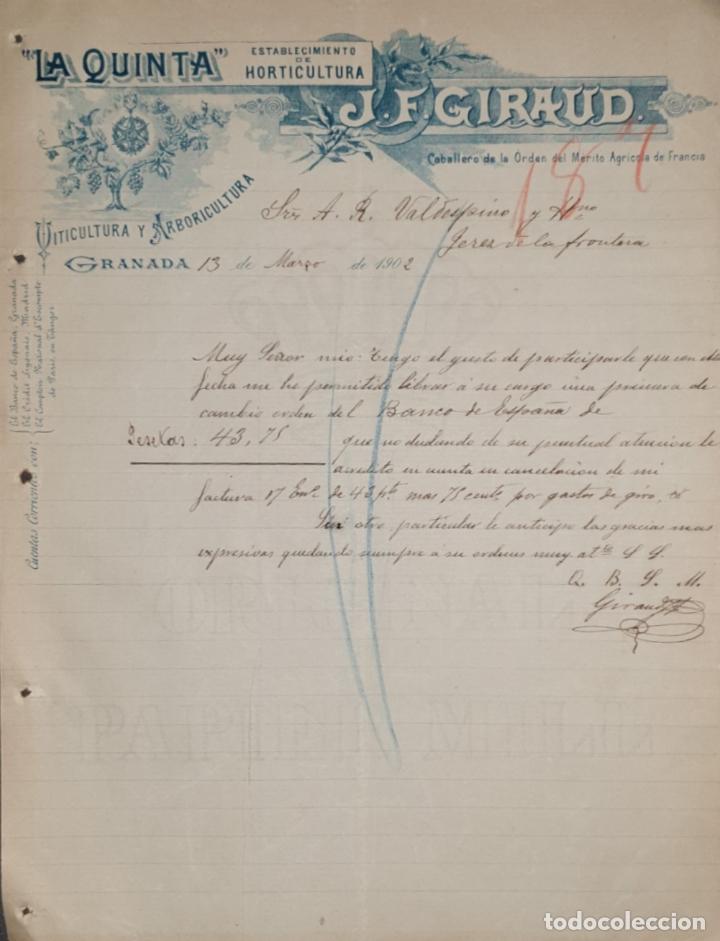 "LA QUINTA"
ESTABLECIMIENTO
DE
HORTICULTURA
J. F. GIRAUD.
Caballero de la Orden del Mérito Agrícola de Francia
VITICULTURA Y ARBORICULTURA
18
Sres A. R. Valdespino y Hno
Jerez de la frontera
GRANADA 13 de Marzo de 1902
Cuentas Corrientes con:
El Banco de España, Granada
El Crédit Lyonnais, Madrid
El Comptoir National d'Escompte
de Paris, en Tánger
Muy Señor mio: Tengo el gusto de participarle que con esta
fecha me he permitido librar á su cargo una primera de
cambio orden del Banco de España de
Pesetas: 43,75 que no dudando de su puntual atencion le
acredito en cuenta en cancelacion de mi
factura 17 Eno de 43 pts mas 75 cents por gastos de giro,
Sin otro particular le anticipo las gracias mas
expresivas quedando siempre a su ordenes muy atto S S.
Q. B. S. M.
Giraud
todocoleccion
todocoleccion.net